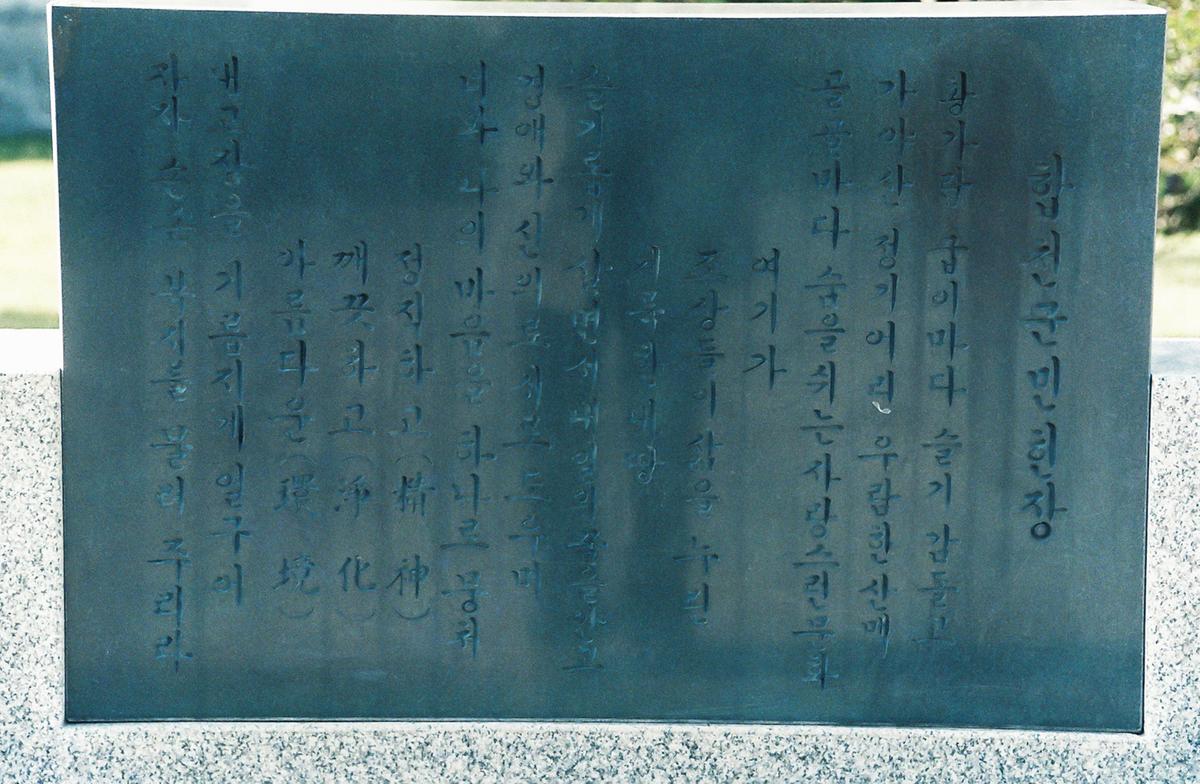 합천군민헌장
황가람 굽이마다 슬기 감돌고
가야산 정기어린 우람한산맥
골골마다 숨을쉬는사랑스런문화
여기가
조상들이 삶을 누린
거룩한 대
슬기롭게 살면서 내일의
경애와 신의로 서로 도우며
너와 나의 마음을 하나로 뭉쳐
정진하고(精神)
깨끗하고(淨化)
가름다운(環境)
내고장을 기름지게 일구어
자자손손 복지를 물려 주리라